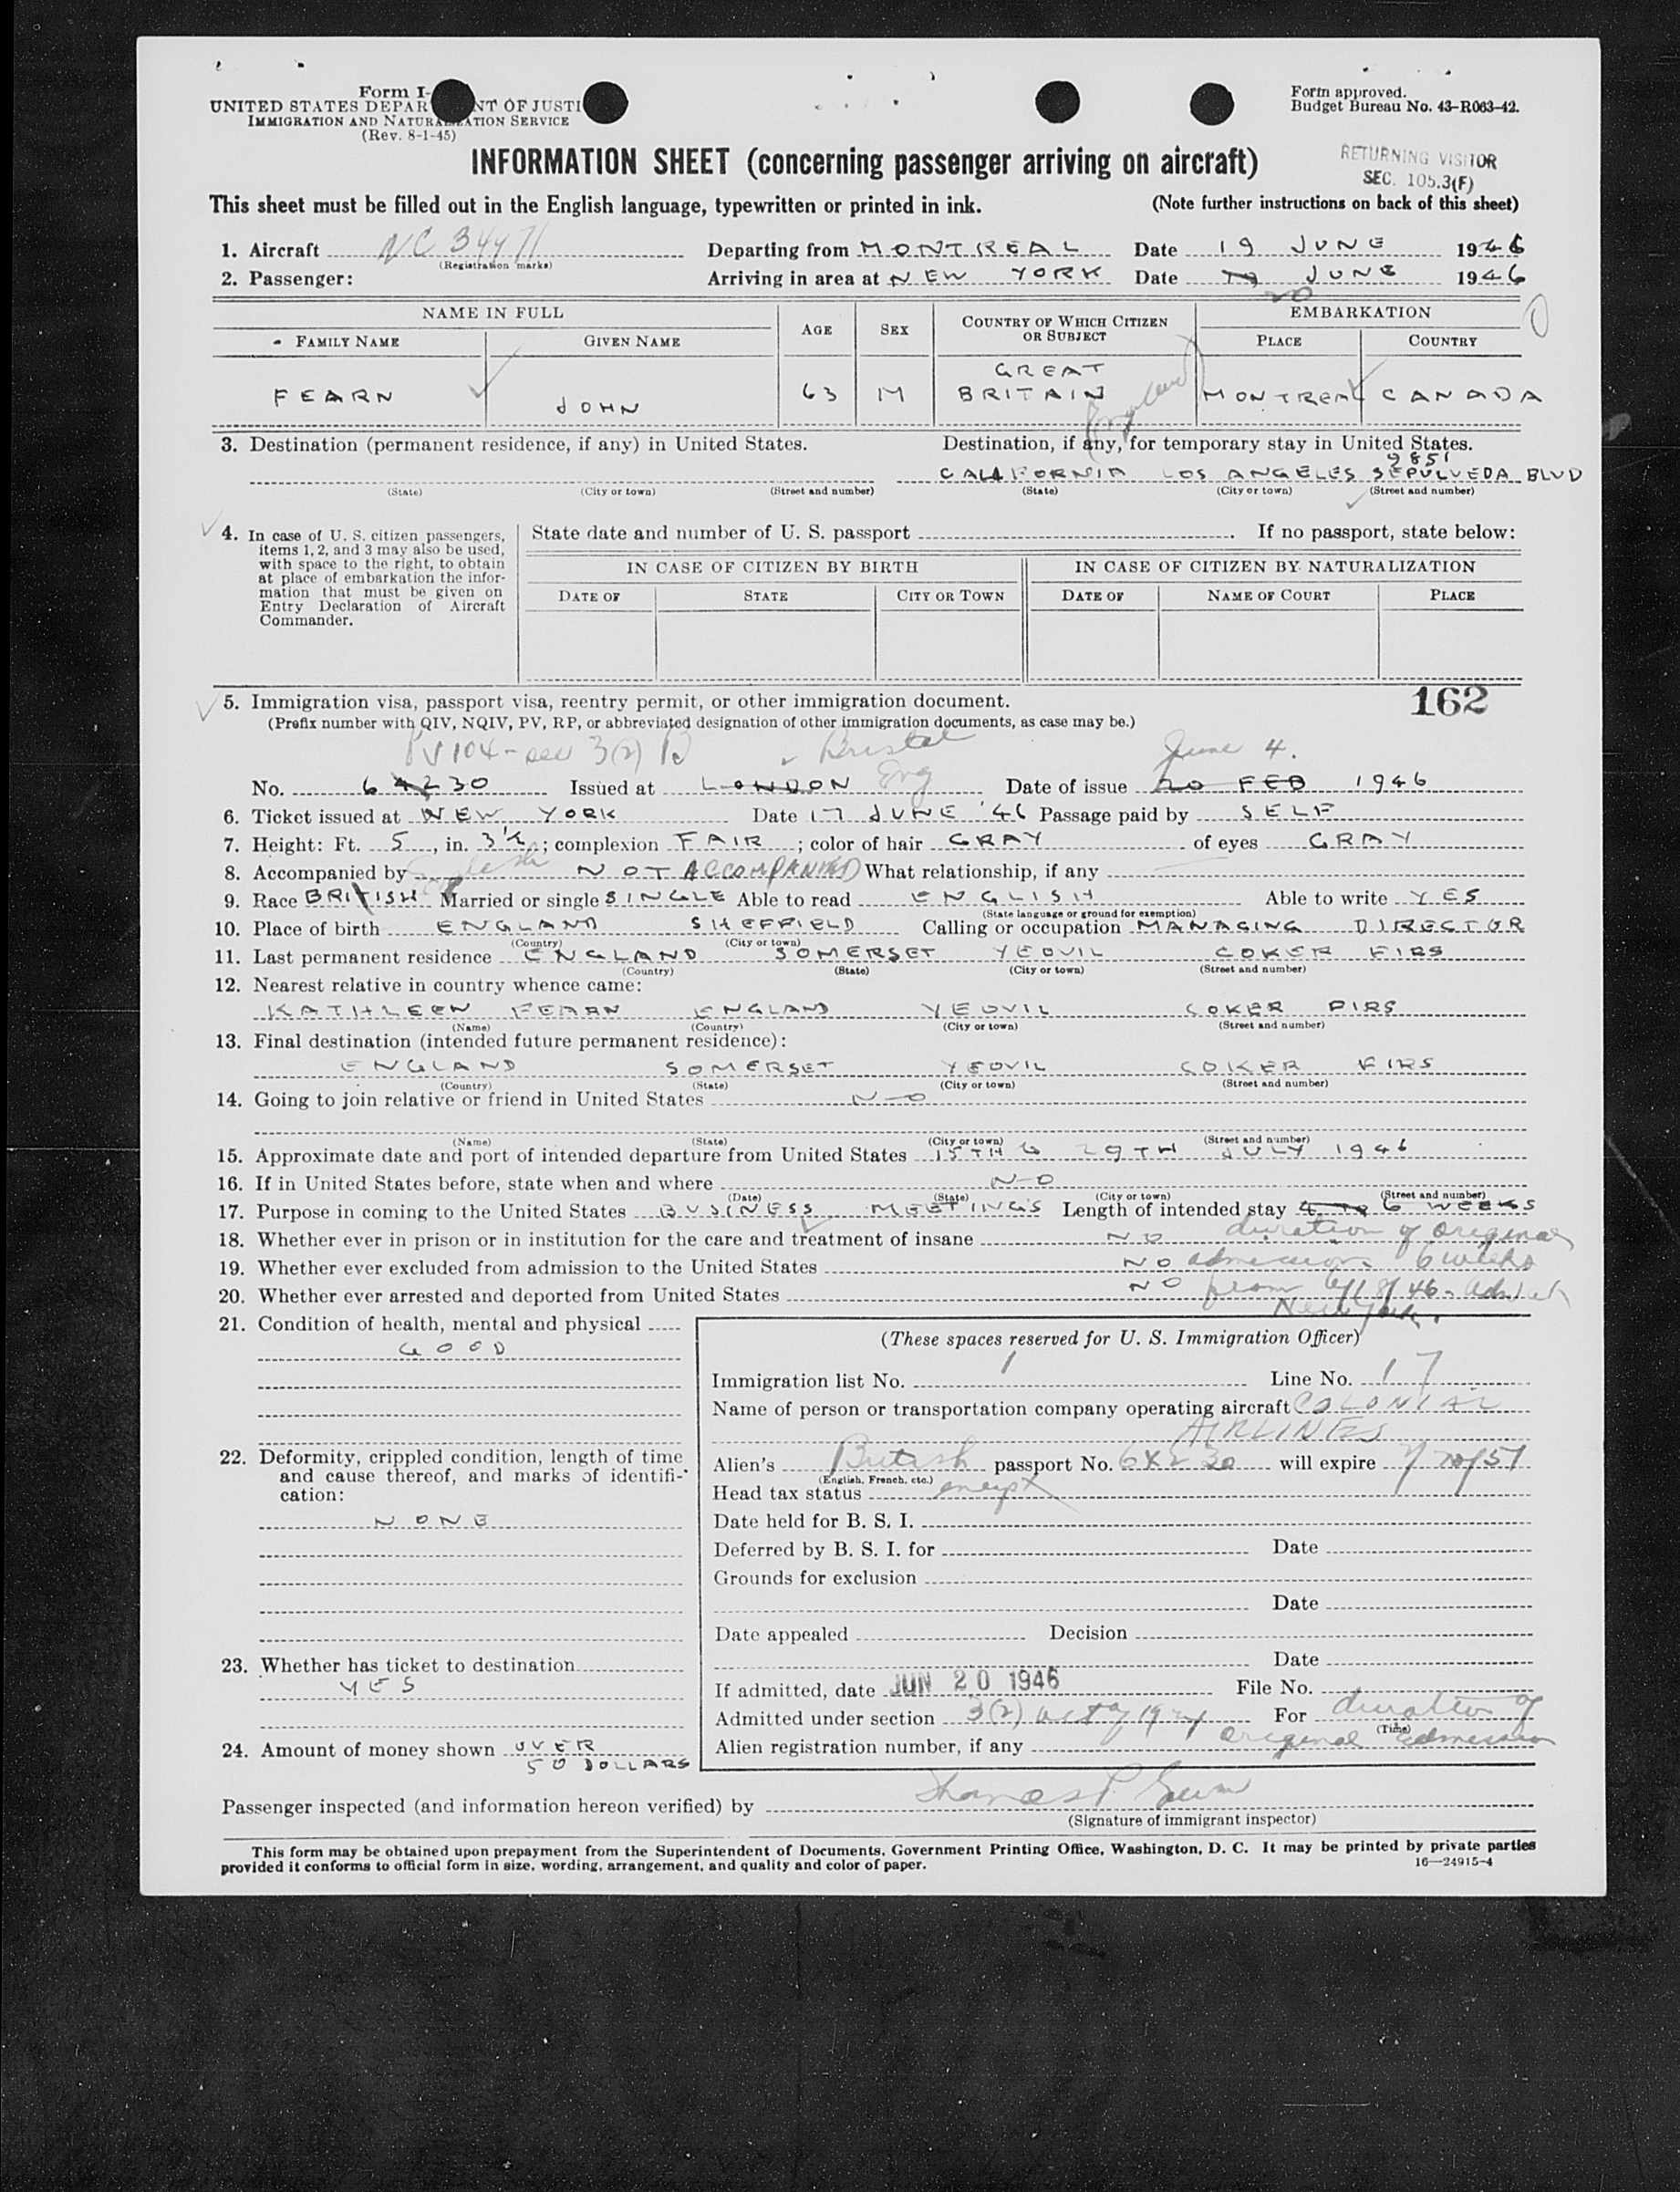 Form I-
UNITED STATES DEPAR NT OF JUSTI
IMMIGRATION AND NATURALIZATION SERVICE
(Rev. 8-1-45)
Form approved.
Budget Bureau No. 43-R063-42.
INFORMATION SHEET (concerning passenger arriving on aircraft)
RETURNING VISITOR
SEC. 105.3(F)
This sheet must be filled out in the English language, typewritten or printed in ink. (Note further instructions on back of this sheet)
1. Aircraft NC 34471 Departing from MONTREAL Date 19 JUNE 1946
(Registration marks)
2. Passenger: Arriving in area at NEW YORK Date 19 JUNE 1946
20
NAME IN FULL AGE SEX COUNTRY OF WHICH CITIZEN OR SUBJECT EMBARKATION
FAMILY NAME GIVEN NAME PLACE COUNTRY
FEARN JOHN 63 M GREAT BRITAIN (England) MONTREAL CANADA
3. Destination (permanent residence, if any) in United States. Destination, if any, for temporary stay in United States.
9851
CALIFORNIA LOS ANGELES SEPULVEDA BLVD
(State) (City or town) (Street and number) (State) (City or town) (Street and number)
4. In case of U. S. citizen passengers,
items 1, 2, and 3 may also be used,
with space to the right, to obtain
at place of embarkation the infor-
mation that must be given on
Entry Declaration of Aircraft
Commander.
State date and number of U. S. passport . If no passport, state below:
IN CASE OF CITIZEN BY BIRTH IN CASE OF CITIZEN BY NATURALIZATION
DATE OF STATE CITY OR TOWN DATE OF NAME OF COURT PLACE
5. Immigration visa, passport visa, reentry permit, or other immigration document. 162
(Prefix number with QIV, NQIV, PV, RP, or abbreviated designation of other immigration documents, as case may be.)
PV 104 - sec 3(2) B Bristol June 4.
No. 64230 Issued at LONDON Eng Date of issue 20 FEB 1946
6. Ticket issued at NEW YORK Date 17 JUNE '46 Passage paid by SELF
7. Height: Ft. 5, in. 3½; complexion FAIR; color of hair GRAY of eyes GRAY
8. Accompanied by NOT ACCOMPANIED What relationship, if any
9. Race BRITISH Married or single SINGLE Able to read ENGLISH Able to write YES
(State language or ground for exemption)
10. Place of birth ENGLAND SHEFFIELD Calling or occupation MANAGING DIRECTOR
(Country) (City or town)
11. Last permanent residence ENGLAND SOMERSET YEOVIL COKER FIRS
(Country) (State) (City or town) (Street and number)
12. Nearest relative in country whence came:
KATHLEEN FEARN ENGLAND YEOVIL COKER FIRS
(Name) (Country) (City or town) (Street and number)
13. Final destination (intended future permanent residence):
ENGLAND SOMERSET YEOVIL COKER FIRS
(Country) (State) (City or town) (Street and number)
14. Going to join relative or friend in United States NO
(Name) (State) (City or town) (Street and number)
15. Approximate date and port of intended departure from United States 15TH to 29TH JULY 1946
16. If in United States before, state when and where NO
(Date) (State) (City or town) (Street and number)
17. Purpose in coming to the United States BUSINESS MEETINGS Length of intended stay 4 TO 6 WEEKS
18. Whether ever in prison or in institution for the care and treatment of insane NO duration of original
19. Whether ever excluded from admission to the United States NO admission 6 weeks
20. Whether ever arrested and deported from United States NO from 6/18/46
New York.
21. Condition of health, mental and physical
GOOD
22. Deformity, crippled condition, length of time
and cause thereof, and marks of identifi-
cation:
NONE
23. Whether has ticket to destination
YES
24. Amount of money shown OVER
50 DOLLARS
(These spaces reserved for U. S. Immigration Officer)
Immigration list No. 1 Line No. 17
Name of person or transportation company operating aircraft COLONIAL
AIRLINES
Alien's British passport No. will expire
(English, French, etc.)
Head tax status exempt
Date held for B. S. I.
Deferred by B. S. I. for Date
Grounds for exclusion
Date
Date appealed Decision
Date
If admitted, date JUN 20 1946 File No.
Admitted under section 3(2) act of 1924 For duration of
(Time)
Alien registration number, if any original admission
Passenger inspected (and information hereon verified) by
(Signature of immigrant inspector)
This form may be obtained upon prepayment from the Superintendent of Documents, Government Printing Office, Washington, D. C. It may be printed by private parties
provided it conforms to official form in size, wording, arrangement, and quality and color of paper. 16—24915-4